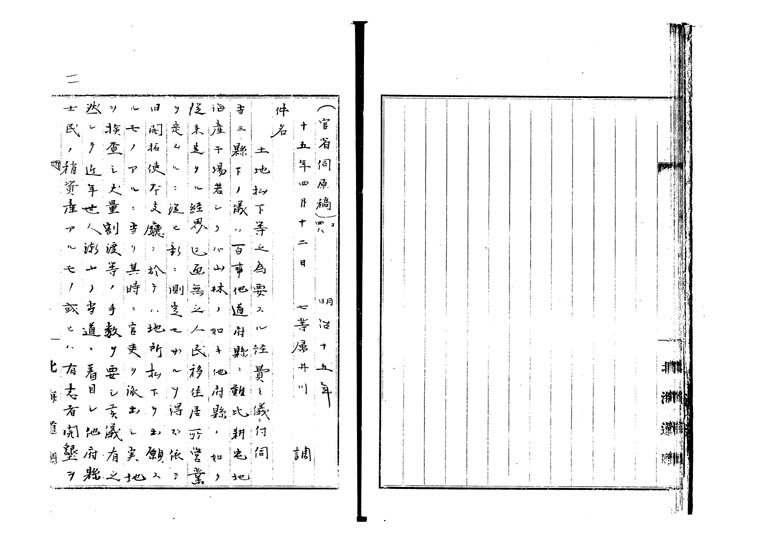 (官省伺原稿)
明治十五年
十五年四月十二日 七等属井川 調
件名
土地払下等之為要スル経費之儀付伺
当三県下ノ儀ハ百事他道府県ニ難比耕宅地
海産干場若シクハ山林ノ如キ他府県ノ如ク
従来造クル経界已画無之人民移住居所営業
ヲ定ムルニ従ヒ新ニ測定セサルヲ得ス依テ
旧開拓使本支庁ニ於テハ地所払下ヲ出願ス
ルモノアルニ当リ其時々官吏ヲ派出シ実地
ヲ検査シ丈量割渡等ノ手数ヲ要シ候儀有之
然ルヲ近年世人漸ク当道ニ着目シ他府県
士民ノ稍資産アルモノ或ヒハ有志者開墾ヲ
二
北海道
北海道